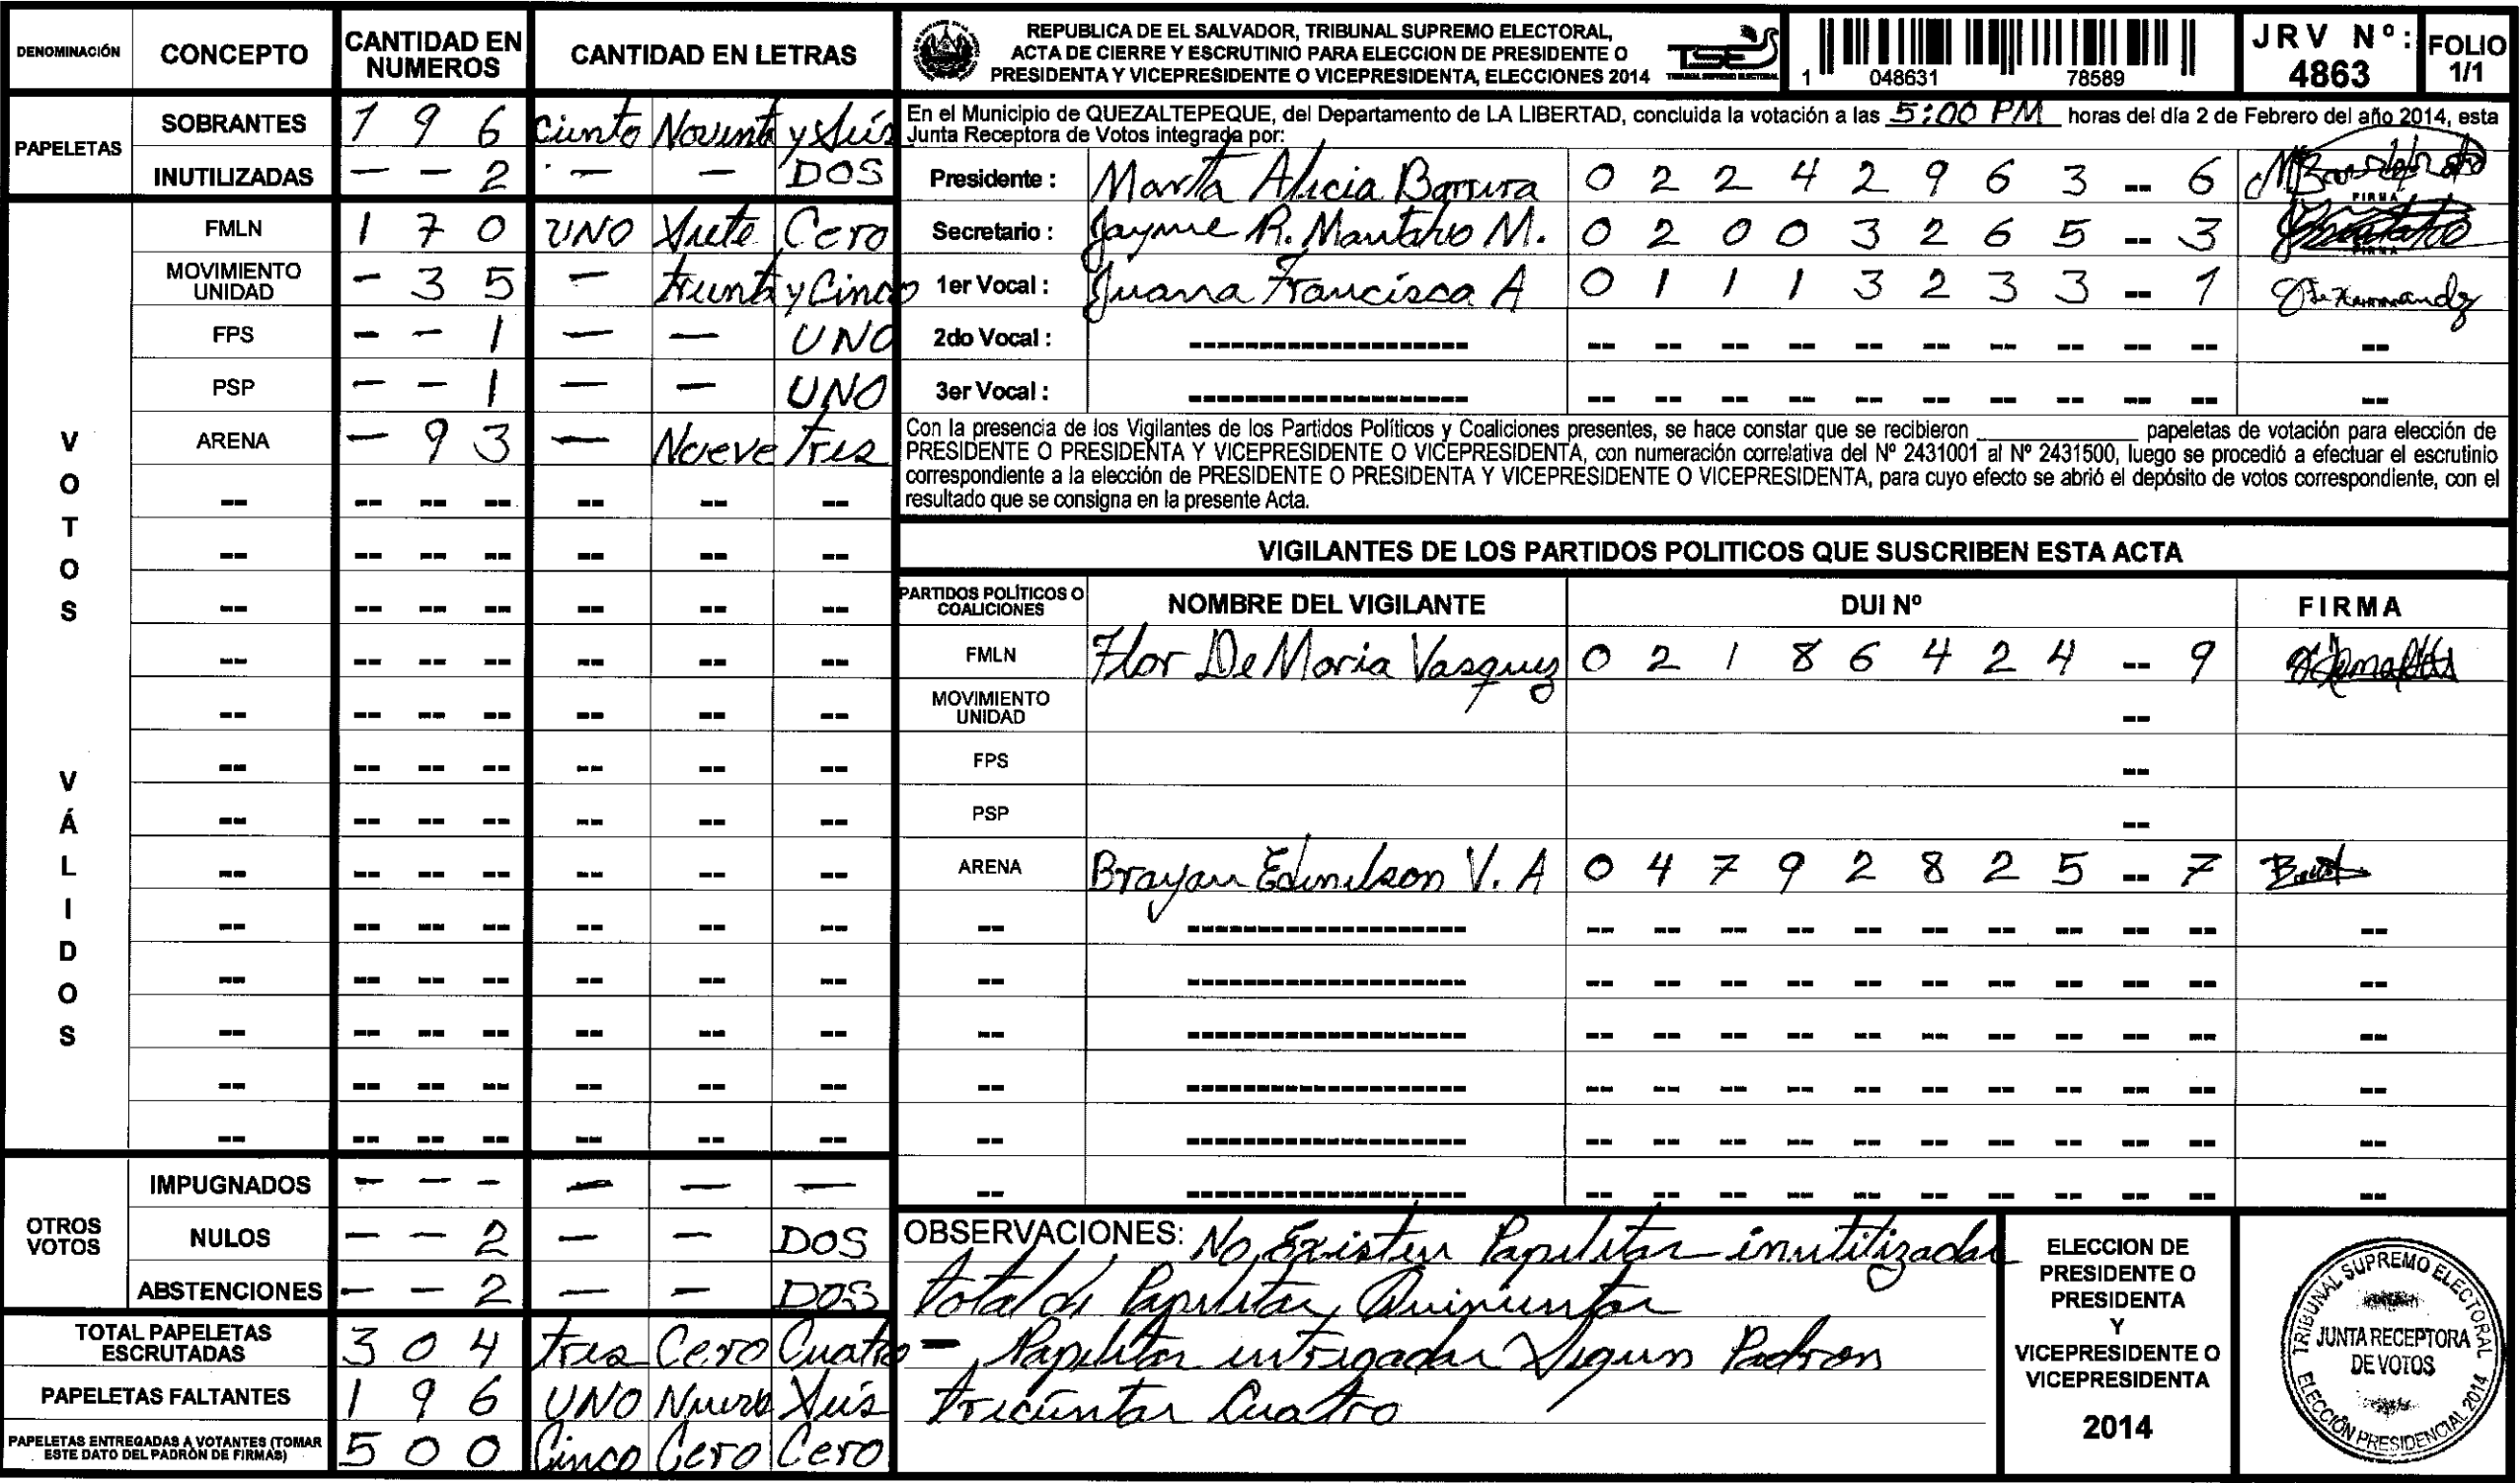 DENOMINACIÓN CONCEPTO CANTIDAD EN NUMEROS CANTIDAD EN LETRAS
PAPELETAS
SOBRANTES 1 9 6 Ciento Noventa y Seis
INUTILIZADAS — — 2 — — DOS
VOTOS VÁLIDOS
FMLN 1 7 0 UNO Siete Cero
MOVIMIENTO UNIDAD — 3 5 — Treinta y Cinco
FPS — — 1 — — UNO
PSP — — 1 — — UNO
ARENA — 9 3 — Nueve Tres
OTROS VOTOS
IMPUGNADOS — — — — — —
NULOS — — 2 — — DOS
ABSTENCIONES — — 2 — — DOS
TOTAL PAPELETAS ESCRUTADAS 3 0 4 Tres Cero Cuatro
PAPELETAS FALTANTES 1 9 6 UNO Nueve Seis
PAPELETAS ENTREGADAS A VOTANTES (TOMAR ESTE DATO DEL PADRÓN DE FIRMAS) 5 0 0 Cinco Cero Cero
REPUBLICA DE EL SALVADOR, TRIBUNAL SUPREMO ELECTORAL,
ACTA DE CIERRE Y ESCRUTINIO PARA ELECCION DE PRESIDENTE O
PRESIDENTA Y VICEPRESIDENTE O VICEPRESIDENTA, ELECCIONES 2014
TSE
TRIBUNAL SUPREMO ELECTORAL
1 048631 78589
JRV Nº: 4863
FOLIO 1/1
En el Municipio de QUEZALTEPEQUE, del Departamento de LA LIBERTAD, concluida la votación a las 5:00 PM horas del día 2 de Febrero del año 2014, esta
Junta Receptora de Votos integrada por:
Presidente : Marta Alicia Barrera 0 2 2 4 2 9 6 3 -- 6
FIRMA
Secretario : Jayme R. Montano M. 0 2 0 0 3 2 6 5 -- 3
FIRMA
1er Vocal : Juana Francisca A 0 1 1 1 3 2 3 3 -- 1
2do Vocal :
3er Vocal :
Con la presencia de los Vigilantes de los Partidos Políticos y Coaliciones presentes, se hace constar que se recibieron ________ papeletas de votación para elección de
PRESIDENTE O PRESIDENTA Y VICEPRESIDENTE O VICEPRESIDENTA, con numeración correlativa del Nº 2431001 al Nº 2431500, luego se procedió a efectuar el escrutinio
correspondiente a la elección de PRESIDENTE O PRESIDENTA Y VICEPRESIDENTE O VICEPRESIDENTA, para cuyo efecto se abrió el depósito de votos correspondiente, con el
resultado que se consigna en la presente Acta.
VIGILANTES DE LOS PARTIDOS POLITICOS QUE SUSCRIBEN ESTA ACTA
PARTIDOS POLÍTICOS O COALICIONES NOMBRE DEL VIGILANTE DUI Nº FIRMA
FMLN Flor De Maria Vasquez 0 2 1 8 6 4 2 4 -- 9
MOVIMIENTO UNIDAD --
FPS --
PSP --
ARENA Brayan Edmilson V. A 0 4 7 9 2 8 2 5 -- 7
OBSERVACIONES: No Existen Papeletas inutilizadas
Total de Papeletas Quinientas
— Papeletas entregadas Segun Padron
Trecientas Cuatro
ELECCION DE
PRESIDENTE O
PRESIDENTA
Y
VICEPRESIDENTE O
VICEPRESIDENTA
2014
TRIBUNAL SUPREMO ELECTORAL
JUNTA RECEPTORA
DE VOTOS
ELECCIÓN PRESIDENCIAL 2014